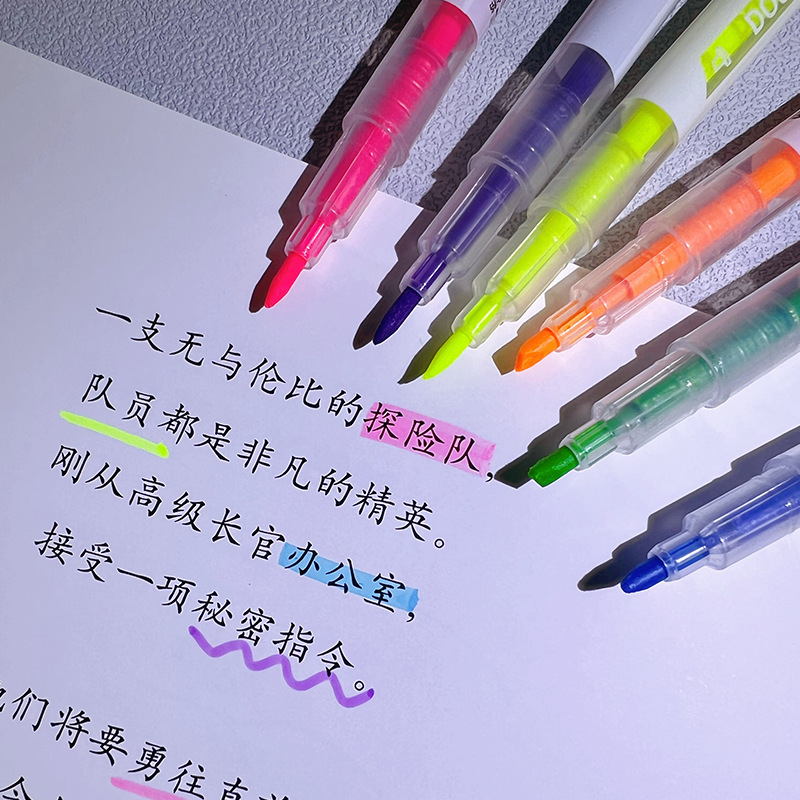 一支无与伦比的探险队，
队员都是非凡的精英。
刚从高级长官办公室，
接受一项秘密指令。
们将要勇往直
令
DOU